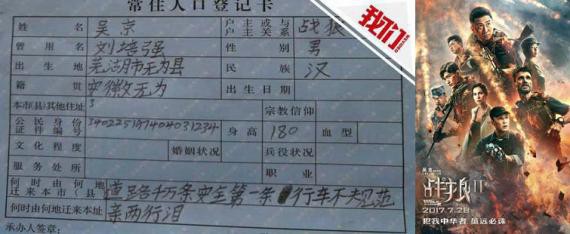 常住人口登记卡
姓名 吴京 户主或与户主关系 战狼
曾用名 刘培强 性别 男
出生地 芜湖市无为县 民族 汉
籍贯 安徽无为 出生日期
本市(县)其他住址 宗教信仰
公民身份证件编号 身高 180 血型
文化程度 婚姻状况 兵役状况
服务处所 职业
何时由何地迁来本市(县) 道路千万条安全第一条 行车不规范
何时由何地迁来本址 亲两行泪
承办人签章:
我们
战狼II
2017.7.28
犯我中华者 虽远必诛